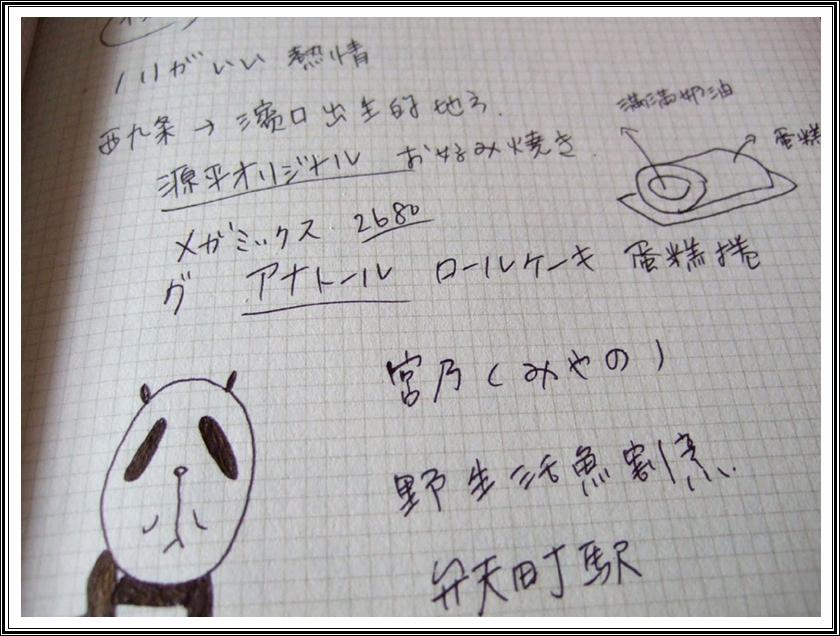 ノリがいい 熱情
西九条 → 濱口出生的地方
満満奶油
蛋糕
源平オリジナル お好み焼き
メガミックス 2680
グ アナトール ロールケーキ 蛋糕捲
宮乃(みやの)
野生活魚割烹
弁天町駅